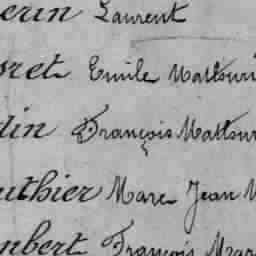 erin Laurent
oret Emile Mathuri
din François Mathur
uthier Marc Jean M
mbert François Mar